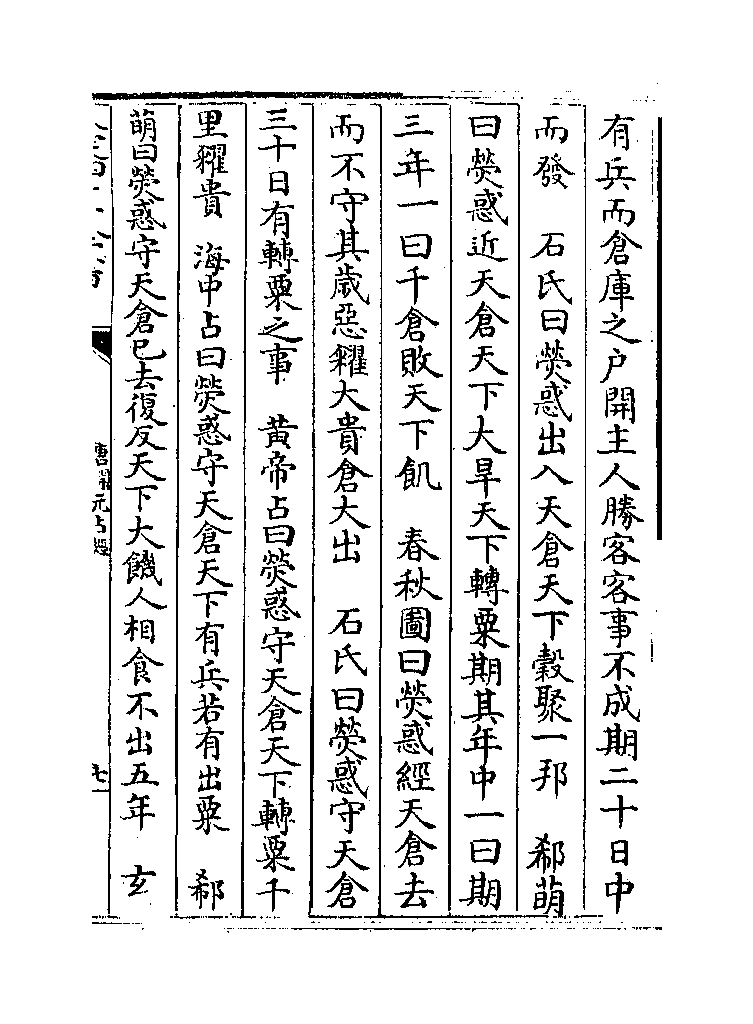 有兵而倉庫之户開主人勝客客事不成期二十日中
而發　石氏曰熒惑出入天倉天下穀聚一邦　郗萌
曰熒惑近天倉天下大旱天下轉粟期其年中一曰期
三年一曰千倉敗天下飢　春秋圖曰熒惑經天倉去
而不守其歲惡糴大貴倉大出　石氏曰熒惑守天倉
三十日有轉粟之事　黄帝占曰熒惑守天倉天下轉粟千
里糴貴　海中占曰熒惑守天倉天下有兵若有出粟　郗
萌曰熒惑守天倉已去復反天下大饑人相食不出五年　玄
唐開元占經